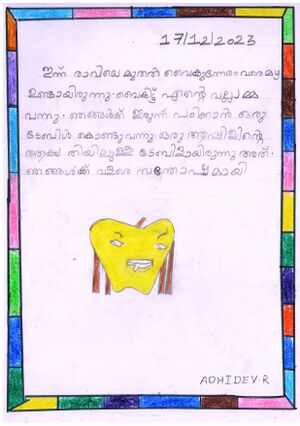 17/12/2023
ഇന്ന് രാവിലെ മുതൽ വൈകുന്നേരം വരെ മഴ
ഉണ്ടായിരുന്നു. വൈകിട്ട് എന്റെ വല്യമ്മ
വന്നു. ഞങ്ങൾക്ക് ഇരുന്ന് പഠിക്കാൻ ഒരു
ടേബിൾ കൊണ്ടുവന്നു. ഒരു ആപ്പിളിന്റെ
ആകൃതിയിലുള്ള ടേബിളായിരുന്നു അത്.
ഞങ്ങൾക്ക് വളരെ സന്തോഷമായി
ADHIDEV.R